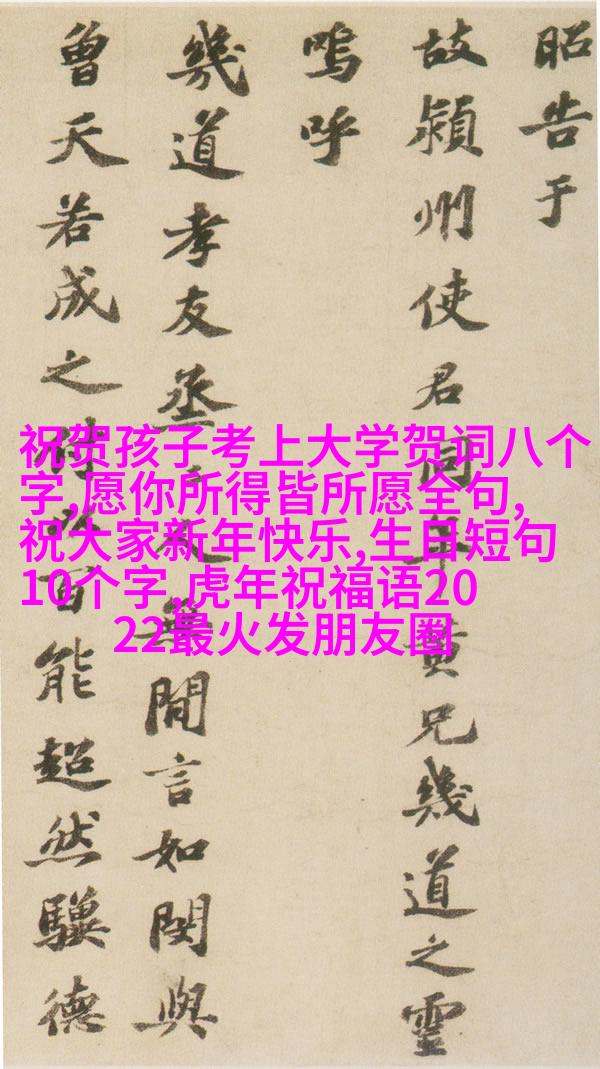 昭告于
故潁州使君同年黃兄幾道之靈
嗚呼
幾道孝友烝無間言如閔與
曾天若成之付以百能超然驥德
祝贺孩子考上大学贺词八个
字,愿你所得皆所愿全句,
祝大家新年快乐,生日短句
10个字,虎年祝福语20
22最火发朋友圈